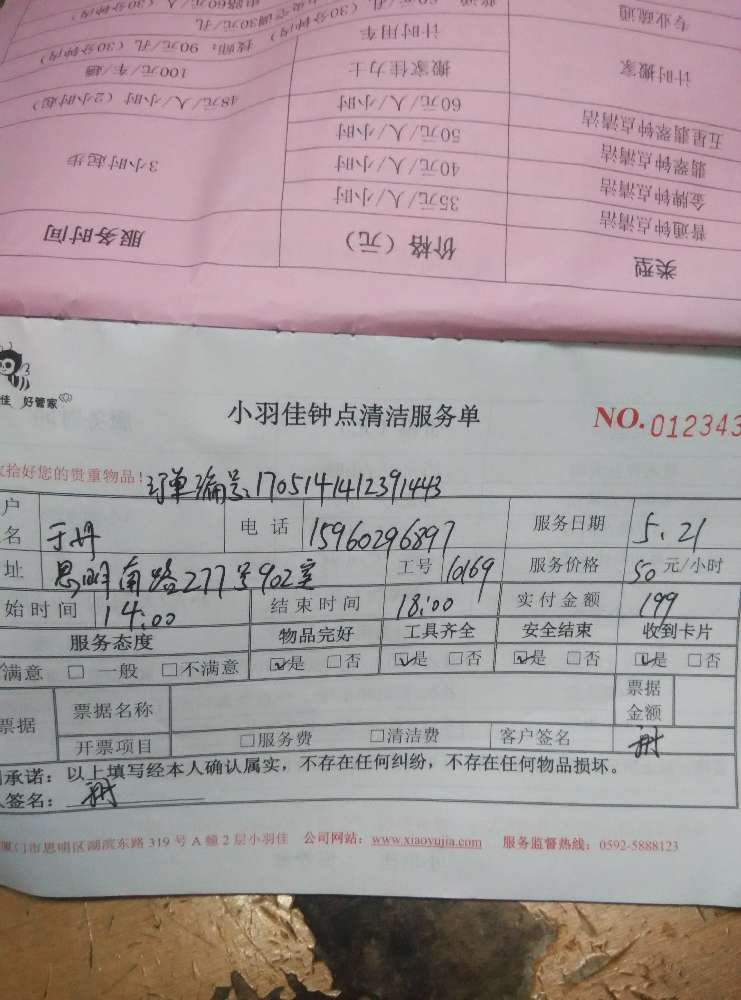 专业疏通
计时搬家 搬家佳力士 100元/车/趟
计时用车
五星翡翠钟点清洁 60元/人/小时 48元/人/小时（2小时起）
翡翠钟点清洁 50元/人/小时
金牌钟点清洁 40元/人/小时 3小时起步
普通钟点清洁 35元/人/小时
类型 价格（元） 服务时间
佳 好管家
小羽佳钟点清洁服务单 NO.012343
拾好您的贵重物品！ 订单编号:1705141412391443
户名 于丹 电话 15960296897 服务日期 5.21
址 思明南路277号902室 工号 10169 服务价格 50 元/小时
始时间 14:00 结束时间 18:00 实付金额 199
服务态度 物品完好 工具齐全 安全结束 收到卡片
满意 □ 一般 □不满意 ☑是 □否 ☑是 □否 ☑是 □否 ☑是 □否
票据 票据名称 票据金额
开票项目 □服务费 □清洁费 客户签名
承诺：以上填写经本人确认属实，不存在任何纠纷，不存在任何物品损坏。
签名：
厦门市思明区湖滨东路 319 号 A 幢 2 层小羽佳 公司网站：www.xiaoyujia.com 服务监督热线：0592-5888123